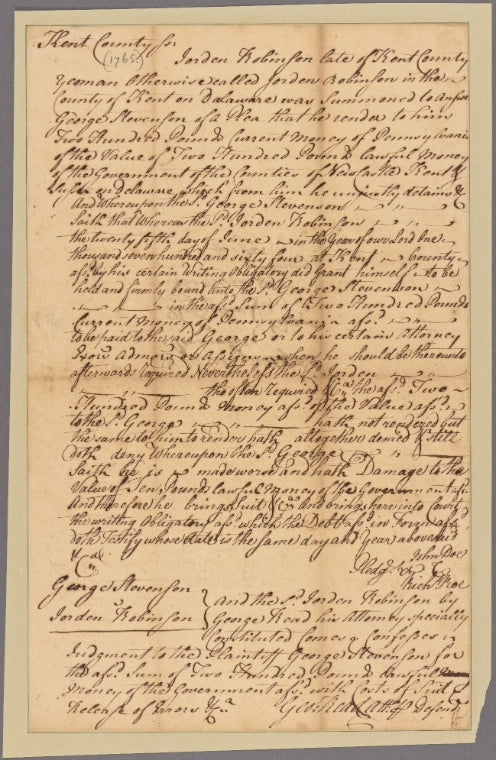 Kent County ss
(1765)
Jorden Robinson late of Kent County
Yeoman Otherwise called Jorden Robinson in the
County of Kent on Delaware was Summoned to Answr
George Stevenson of a Plea that he render to him
Two Hundred Pounds Current Money of Pennsylvania
of the Value of Two Hundred Pounds lawful Money
of the Government of the Counties of New Castle Kent &
Sussex on Delaware which from him he unjustly detains &c
And Whereupon the sd. George Stevenson
Saith that Whereas the sd. Jorden Robinson
the twenty fifth day of June in the Year of our Lord One
thousand seven hundred and sixty four at Kent County
afsd. by his certain Writing Obligatory did Grant himself to be
held and firmly bound unto the sd. George Stevenson
in the afsd. Sum of Two Hundred Pounds
Current Money of Pennsylvania afsd.
to be paid to the said George or to his certain Attorney
Exors admors or Assigns when he should be thereunto
afterwards required Nevertheless the sd. Jorden
tho often required &ca the afsd. Two
Hundred Pounds Money afsd. of the Value afsd.
to the sd. George hath not rendered but
the same to him to render hath altogether denied & still
doth deny Whereupon the sd. George
Saith he is made worse and hath Damage to the
Value of Ten Pounds lawful Money of the Government afsd.
And therefore he brings Suit &ca And brings here into Court
the writing Obligatory afsd. which the Debt afsd. in Form afsd.
doth Testify whose Date is the same day and Year abovesaid
&c
John Doe
Pledgs. &
Richd. Roe
George Stevenson
vs
Jorden Robinson
And the sd. Jorden Robinson by
George Read his Attorney specially
Constituted Comes & Confesses
Judgment to the Plaintiff George Stevenson for
the afsd. Sum of Two Hundred Pounds lawful
Money of the Government afsd. with Costs of Suit &
Release of Errors &ca
Geo. Read atty. pr. Defendt.